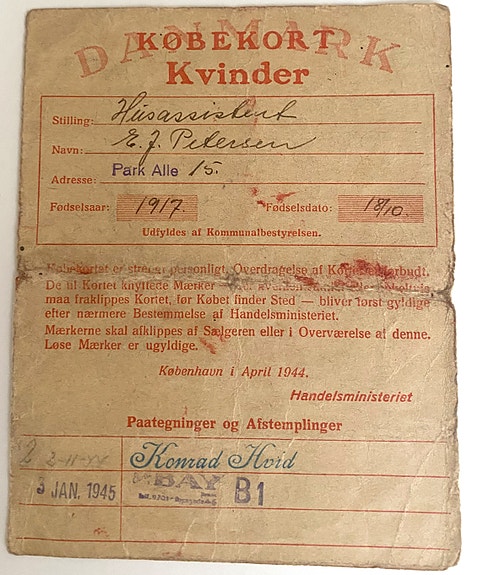 DANMARK
KØBEKORT
Kvinder
Stilling: Husassistent
Navn: E. J. Petersen
Adresse: Park Alle 15.
Fødselsaar: 1917. Fødselsdato: 18/10.
Udfyldes af Kommunalbestyrelsen.
Købekortet er strengt personligt. Overdragelse af Kortet er forbudt.
De til Kortet knyttede Mærker
maa fraklippes Kortet, før Købet finder Sted — bliver først gyldige
efter nærmere Bestemmelse af Handelsministeriet.
Mærkerne skal afklippes af Sælgeren eller i Overværelse af denne.
Løse Mærker er ugyldige.
København i April 1944.
Handelsministeriet
Paategninger og Afstemplinger
2-11-44 Konrad Hvid
3 JAN. 1945 BAY B1